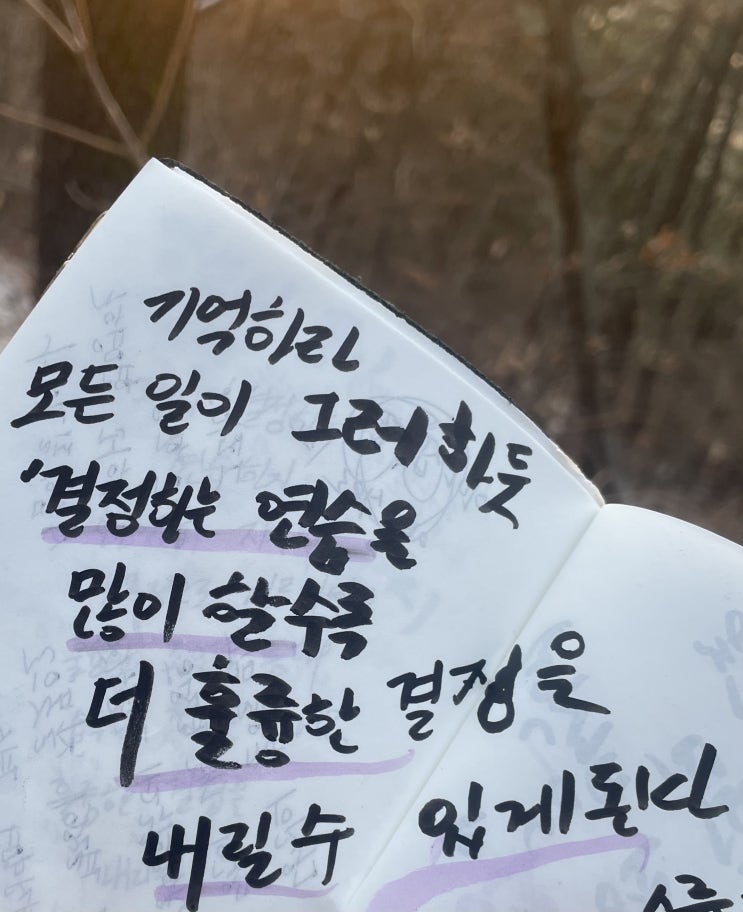 기억하라
모든 일이 그러하듯
'결정하는 연습을
많이 할수록
더 훌륭한 결정을
내릴수 있게된다